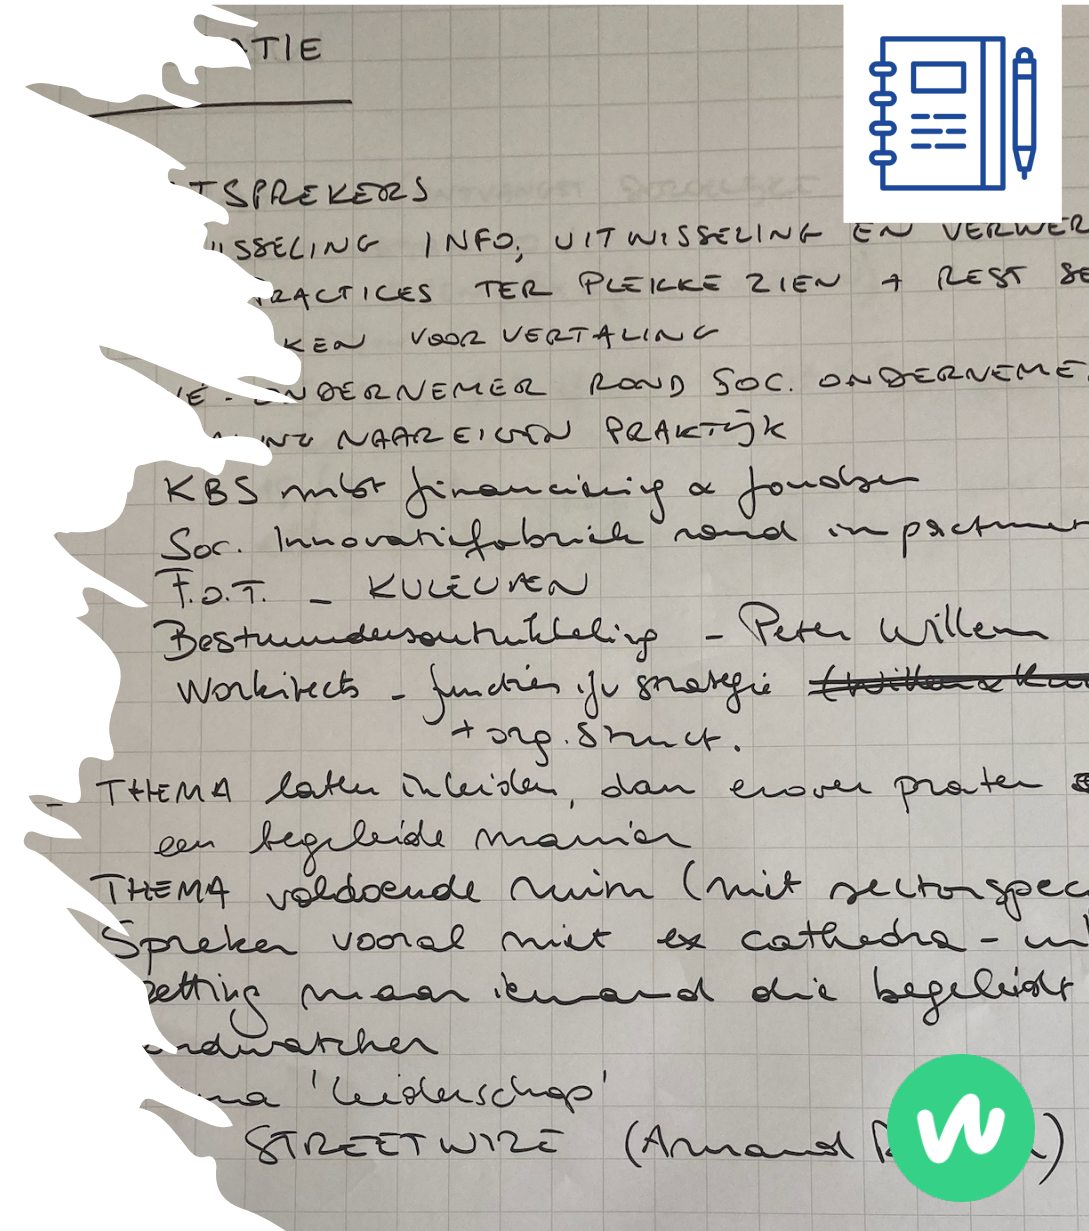 ATIE
TSPREKERS
ISSELING INFO, UITWISSELING EN VERWER
PRACTICES TER PLEKKE ZIEN + REST SE
KEN VOOR VERTALING
IE - ONDERNEMER ROND SOC. ONDERNEME
NAAR EIGEN PRAKTIJK
KBS mbt financiering & fondsen
Soc. Innovatiefabriek rond impactmet
F.O.T. - KULEUVEN
Bestuurdersontwikkeling - Peter Willem
Workitects - functies ifv strategie
+ org. Struct.
- THEMA laten inleiden, dan erover praten
een begeleide manier
THEMA voldoende ruim (niet sectorspec
Spreker vooral niet ex cathedra -
zetting maar iemand die begeleidt
ndwatcher
ma 'leiderschap'
STREETWIZE (Armand )
W